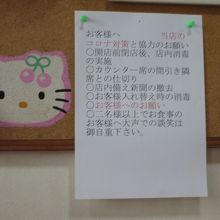 お客様へ　　　当店の
コロナ対策と協力のお願い
〇開店前閉店後、店内消毒
の実施
〇カウンター席の間引き隣
席との仕切り
〇店内備え新聞の撤去
〇お客様入れ替え時の消毒
〇お客様へのお願い
〇二名様以上でお食事の
お客様へ大声での談笑は
御自重下さい。